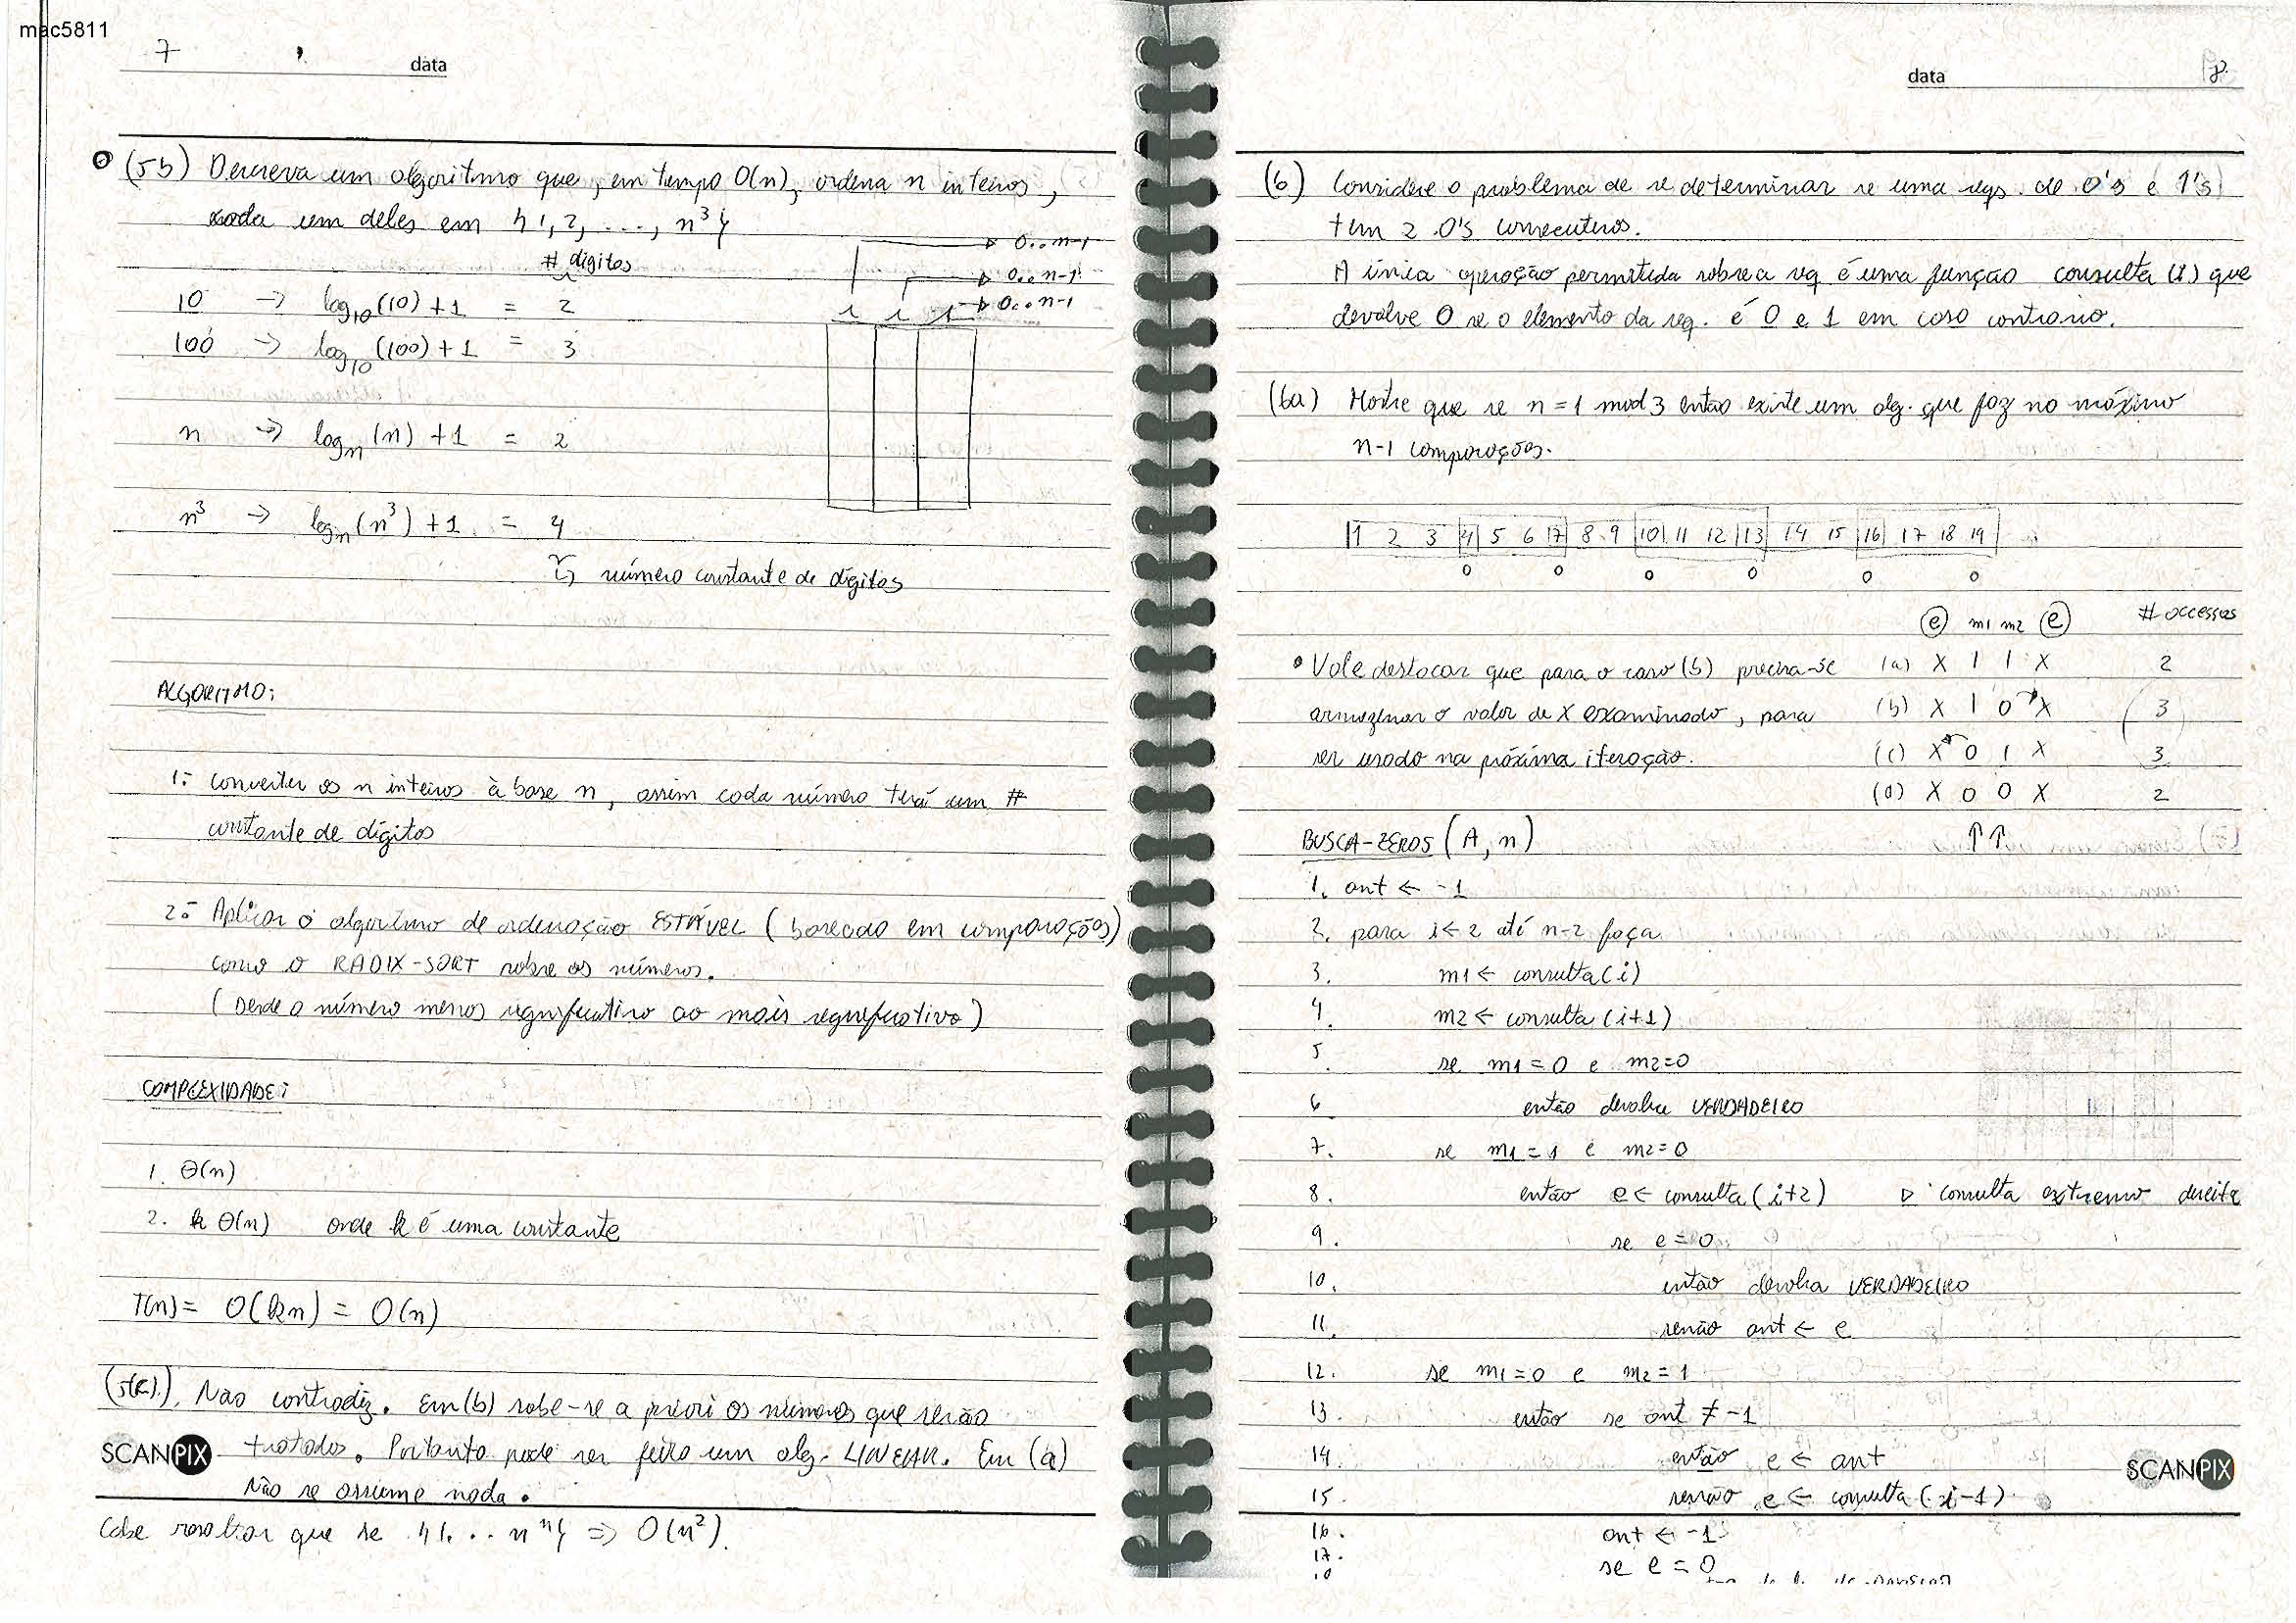 mac5811
7
data
(5b) Descreva um algoritmo que, em tempo O(n), ordena n inteiros,
cada um deles em {1, 2, ..., n³}
# dígitos
0..n-1
0..n-1
0..n-1
10 → log₁₀(10) + 1 = 2
100 → log₁₀(100) + 1 = 3
n → logₙ(n) + 1 = 2
n³ → logₙ(n³) + 1 = 4
número constante de dígitos
ALGORITMO:
1.- converter os n inteiros à base n, assim cada número terá um #
constante de dígitos
2.- Aplicar o algoritmo de ordenação ESTÁVEL (baseado em comparações)
como o RADIX-SORT sobre os números.
(desde o número menos significativo ao mais significativo)
COMPLEXIDADE:
1. Θ(n)
2. k Θ(n) onde k é uma constante
T(n) = O(kn) = O(n)
Não contradiz. Em (b) sabe-se a priori os números que serão
tratados. Portanto pode ser feito um alg. LINEAR. Em (a)
SCANPIX
Não se assume nada.
Cabe resaltar que se {1...nⁿ} ⇒ O(n²).
data
8
(6) Considere o problema de se determinar se uma seqs. de 0's e 1's
tem 2 0's consecutivos.
A única operação permitida sobre a seq é uma função consulta (i) que
devolve 0 se o elemento da seq. é 0 e 1 em caso contrario.
(6a) Mostre que se n = 1 mod 3 então existe um alg. que faz no máximo
n-1 comparações.
1 2 3 4 5 6 7 8 9 10 11 12 13 14 15 16 17 18 19
0 0 0 0 0 0
e m1 m2 e # accessos
• Vale destacar que para o caso (b) precisa-se (a) X 1 1 X 2
armazenar o valor de X examinado, para (b) X 1 0 X 3
ser usado na próxima iteração. (c) X 0 1 X 3
(d) X 0 0 X 2
BUSCA-ZEROS (A, n) ↑↑
1. ant ← -1
2. para i ← 2 até n-2 faça
3. m1 ← consulta(i)
4. m2 ← consulta (i+1)
5. se m1 = 0 e m2 = 0
6 então devolva VERDADEIRO
7. se m1 = 1 e m2 = 0
8. então e ← consulta (i+2) ▷ consulta extremo direita
9. se e = 0
10. então devolva VERDADEIRO
11. senão ant ← e
12. se m1 = 0 e m2 = 1
13. então se ant ≠ -1
14. então e ← ant
SCANPIX
15. senão e ← consulta (i-1)
16. ant ← -1
17. se e = 0